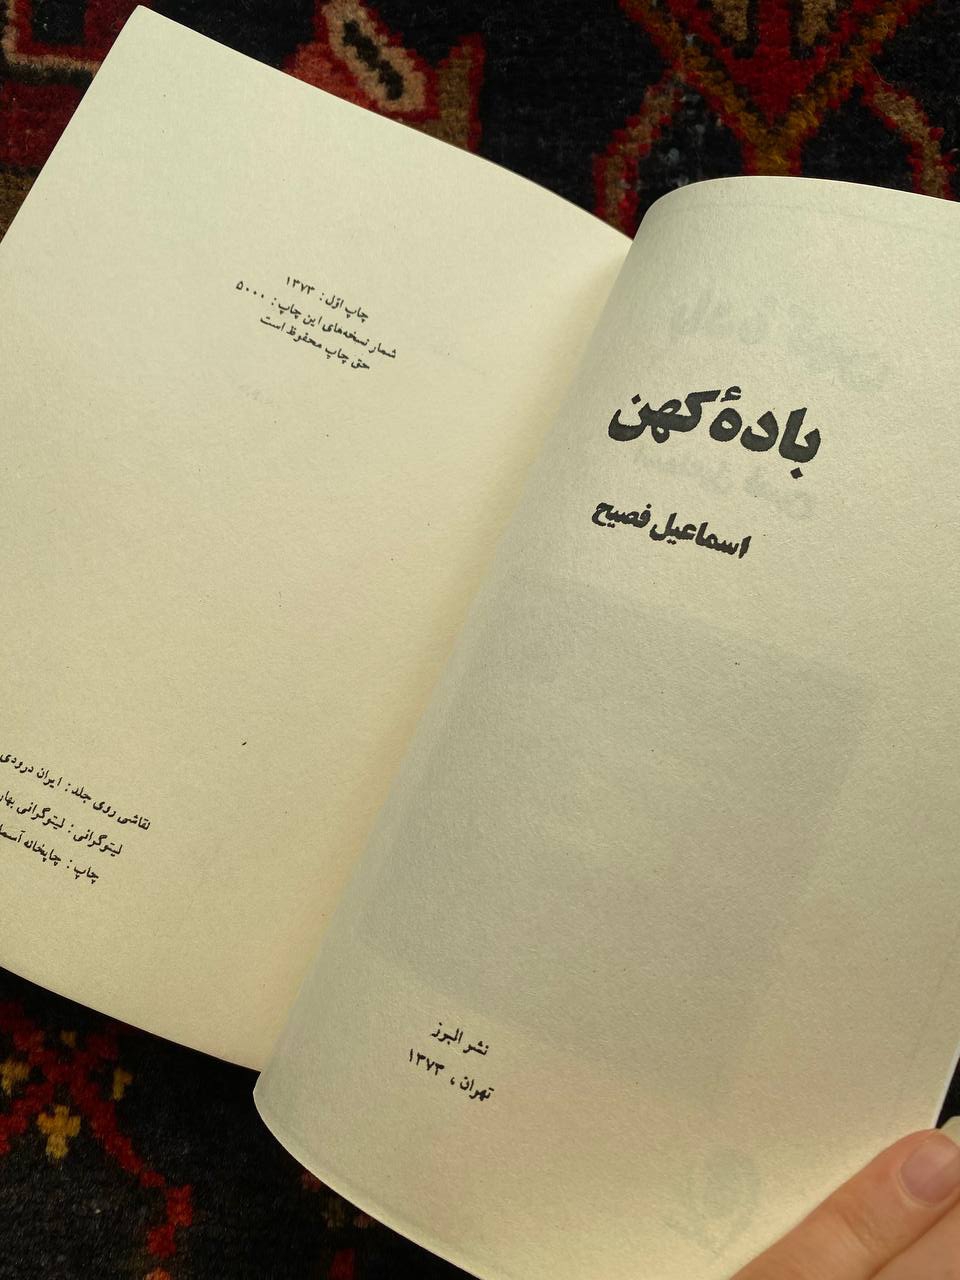 باده‌ٔ کهن
اسماعیل فصیح
نشر البرز
تهران، ۱۳۷۳
چاپ اوّل: ۱۳۷۳
شمار نسخه‌های این چاپ: ۵۰۰۰
حق چاپ محفوظ است
نقاشی روی جلد: ایران درودی
لیتوگرافی: لیتوگرافی بهار
چاپ: چاپخانه